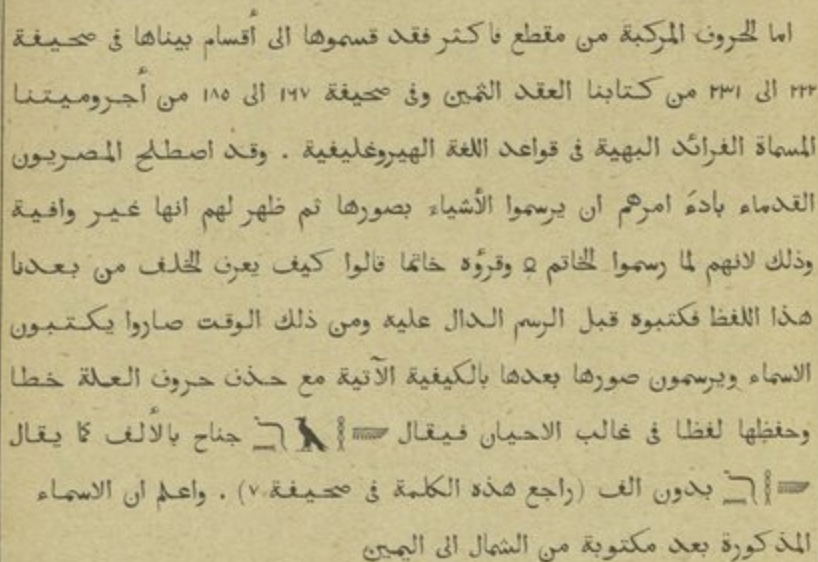 اما الحروف المركبة من مقطع فاكثر فقد قسموها الى أقسام بيناها فى صحيفة
٢٢٢ الى ٢٣١ من كتابنا العقد الثمين وفى صحيفة ١٦٧ الى ١٨٥ من أجروميتنا
المسماة الفرائد البهية فى قواعد اللغة الهيروغليفية . وقد اصطلح المصريون
القدماء بادئَ امرهم ان يرسموا الأشياء بصورها ثم ظهر لهم انها غير وافية
وذلك لانهم لما رسموا الخاتم وقرؤه خاتما قالوا كيف يعرف الخلف من بعدنا
هذا اللفظ فكتبوه قبل الرسم الدال عليه ومن ذلك الوقت صاروا يكتبون
الاسماء ويرسمون صورها بعدها بالكيفية الآتية مع حذف حروف العلة خطا
وحفظها لفظا فى غالب الاحيان فيقال جناح بالألف كما يقال
بدون الف (راجع هذه الكلمة فى صحيفة ٧) . واعلم ان الاسماء
المذكورة بعد مكتوبة من الشمال الى اليمين